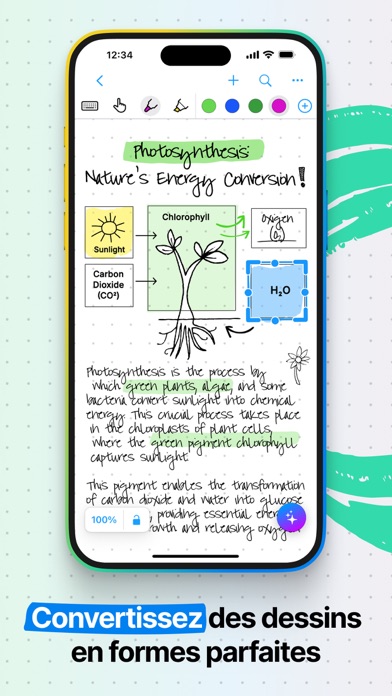 12:34
Photosynthesis:
Nature's Energy Conversion!
Chlorophyll
Oxigen
(O₂)
Sunlight
Carbon
Dioxide
(CO²)
H₂O
Photosynthesis is the process by
which green plants, algae, and some
bacteria convert sunlight into chemical
energy. This crucial process takes place
in the chloroplasts of plant cells,
where the green pigment chlorophyll
captures sunlight
This pigment enables the transformation
of carbon dioxide and water into glucose
providing essential energy
growth and releasing oxygen
100%
Convertissez des dessins
en formes parfaites